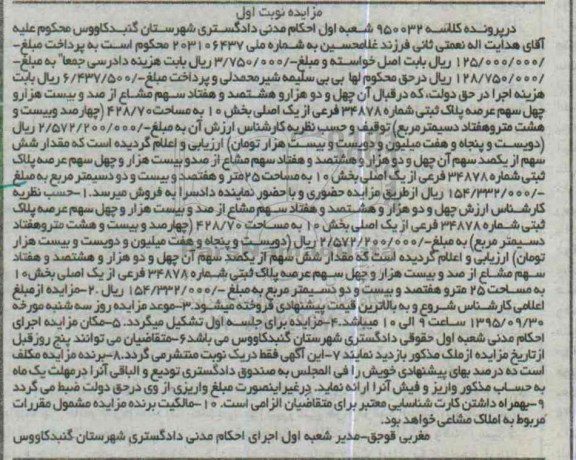 مزایده نوبت اول
درپرونده کلاسه ۹۵۰۰۳۲ شعبه اول احکام مدنی دادگستری شهرستان گنبدکاووس محکوم علیه
آقای هدایت اله نعمتی ثانی فرزند غلامحسین به شماره ملی ۲۰۳۱۰۶۴۳۷ محکوم است به پرداخت مبلغ-
/۱۲۵/۰۰۰/۰۰۰ ریال بابت اصل خواسته و مبلغ-/۳/۷۵۰/۰۰۰ ریال بابت هزینه دادرسی جمعا" به مبلغ-
/۱۲۸/۷۵۰/۰۰۰ ریال درحق محکوم لها بی بی سلیمه شیرمحمدلی و پرداخت مبلغ-/۶/۴۳۷/۵۰۰ ریال بابت
هزینه اجرا در حق دولت، که درقبال آن چهل و دو هزارو هشتصد و هفتاد سهم مشاع از صد و بیست هزارو
چهل سهم عرصه پلاک ثبتی شماره ۳۴۸۷۸ فرعی از یک اصلی بخش ۱۰ به مساحت۴۲۸/۷۰ (چهارصد وبیست و
هشت متروهفتاد دسیمترمربع) توقیف و حسب نظریه کارشناس ارزش آن به مبلغ-/۲/۵۷۲/۲۰۰/۰۰۰ ریال
(دویست و پنجاه و هفت میلیون و دویست و بیست هزار تومان) ارزیابی و اعلام گردیده است که مقدار شش
سهم از یکصد سهم آن چهل و دو هزار و هشتصد و هفتاد سهم مشاع از صدو بیست هزار و چهل سهم عرصه پلاک
ثبتی شماره ۳۴۸۷۸ فرعی از یک اصلی بخش ۱۰ به مساحت ۲۵متر و هفتصد و بیست و دو دسیمتر مربع به مبلغ
-/۱۵۴/۳۳۲/۰۰۰ ریال ازطریق مزایده حضوری و با حضور نماینده دادسرا به فروش میرسد ۱-حسب نظریه
کارشناس ارزش چهل و دو هزار و هشتصد و هفتاد سهم مشاع از صد و بیست هزار و چهل سهم عرصه پلاک
ثبتی شماره ۳۴۸۷۸ فرعی از یک اصلی بخش ۱۰ به مساحت ۴۲۸/۷۰ (چهارصد و بیست و هشت متروهفتاد
دسیمتر مربع) به مبلغ-/۲/۵۷۲/۲۰۰/۰۰۰ ریال (دویست و پنجاه و هفت میلیون و دویست و بیست هزار
تومان) ارزیابی و اعلام گردیده است که مقدار شش سهم از یکصد سهم آن چهل و دو هزار و هشتصد و هفتاد
سهم مشاع از صد و بیست هزار و چهل سهم عرصه پلاک ثبتی شماره ۳۴۸۷۸ فرعی از یک اصلی بخش ۱۰
به مساحت ۲۵ مترو هفتصد و بیست و دو دسیمتر مربع به مبلغ -/۱۵۴/۳۳۲/۰۰۰ ریال .۲-مزایده ازمبلغ
اعلامی کارشناس شروع و به بالاترین قیمت پیشنهادی فروخته میشود.۳-موعد مزایده روز سه شنبه مورخه
۱۳۹۵/۰۹/۳۰ ساعت ۹ الی ۱۰ میباشد.۴-مزایده برای جلسه اول تشکیل میگردد. ۵-مکان مزایده اجرای
احکام مدنی شعبه اول حقوقی دادگستری شهرستان گنبدکاووس می باشد ۶-متقاضیان می توانند پنج روزقبل
از تاریخ مزایده ازملک مذکور بازدید نمایند ۷-این آگهی فقط دریک نوبت منتشرمی گردد.۸-برنده مزایده مکلف
است ده درصد بهای پیشنهادی خویش را فی المجلس به صندوق دادگستری تودیع و الباقی آنرا درمهلت یک ماه
به حساب مذکور واریز و فیش آنرا ارائه نماید. درغیراینصورت مبلغ واریزی ازوی درحق دولت ضبط می گردد
۹-بهمراه داشتن کارت شناسایی معتبر برای متقاضیان الزامی است. ۱۰-مالکیت برنده مزایده مشمول مقررات
مربوط به املاک مشاعی خواهد بود.
مغربی قوجق-مدیر شعبه اول اجرای احکام مدنی دادگستری شهرستان گنبدکاووس